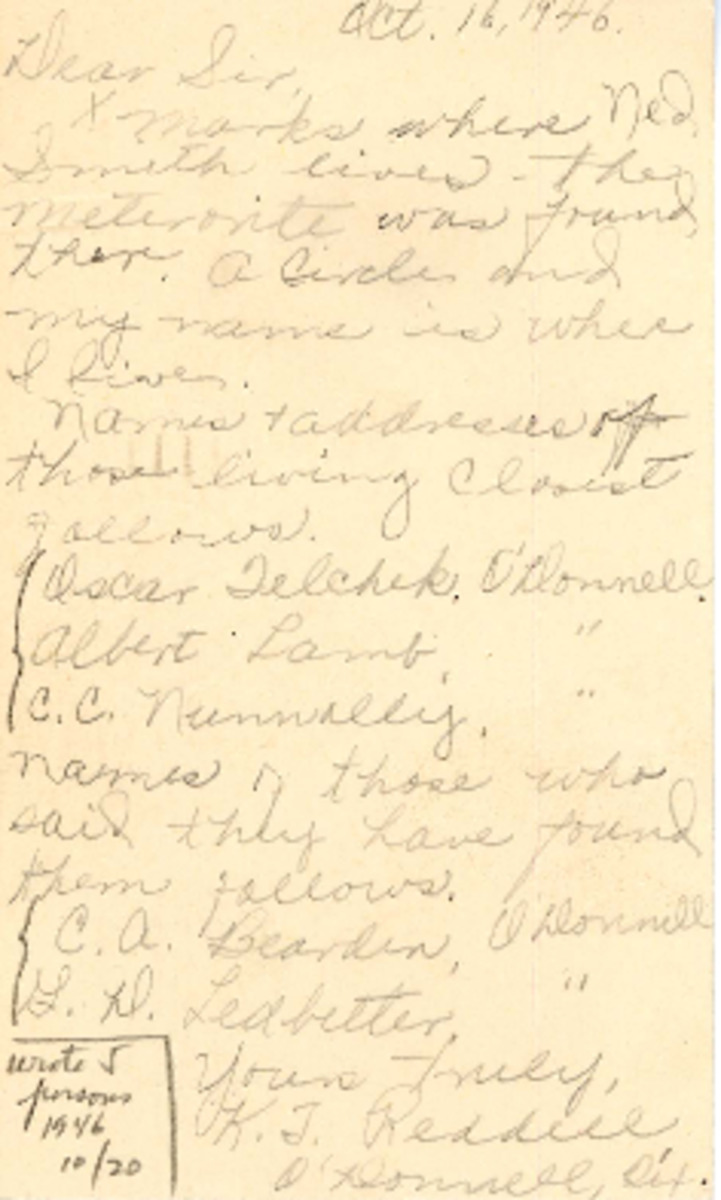 Oct. 16, 1946.
Dear Sir,
X marks where Ned
Smith lives - the
meterorite was found
ther. A Circle and
my name is wher
I lives.
Names + addresses of
those living closest
follows.
Oscar Telchek, O'Donnell.
Albert Lamb, "
C.C. Nunnally, "
names of those who
said they have found
them follows.
C. A. Bearden, O'Donnell
L. D. Ledbetter, "
Yours Truly,
K. T. Reddell
O'Donnell,
wrote 5
persons
1946
10/20